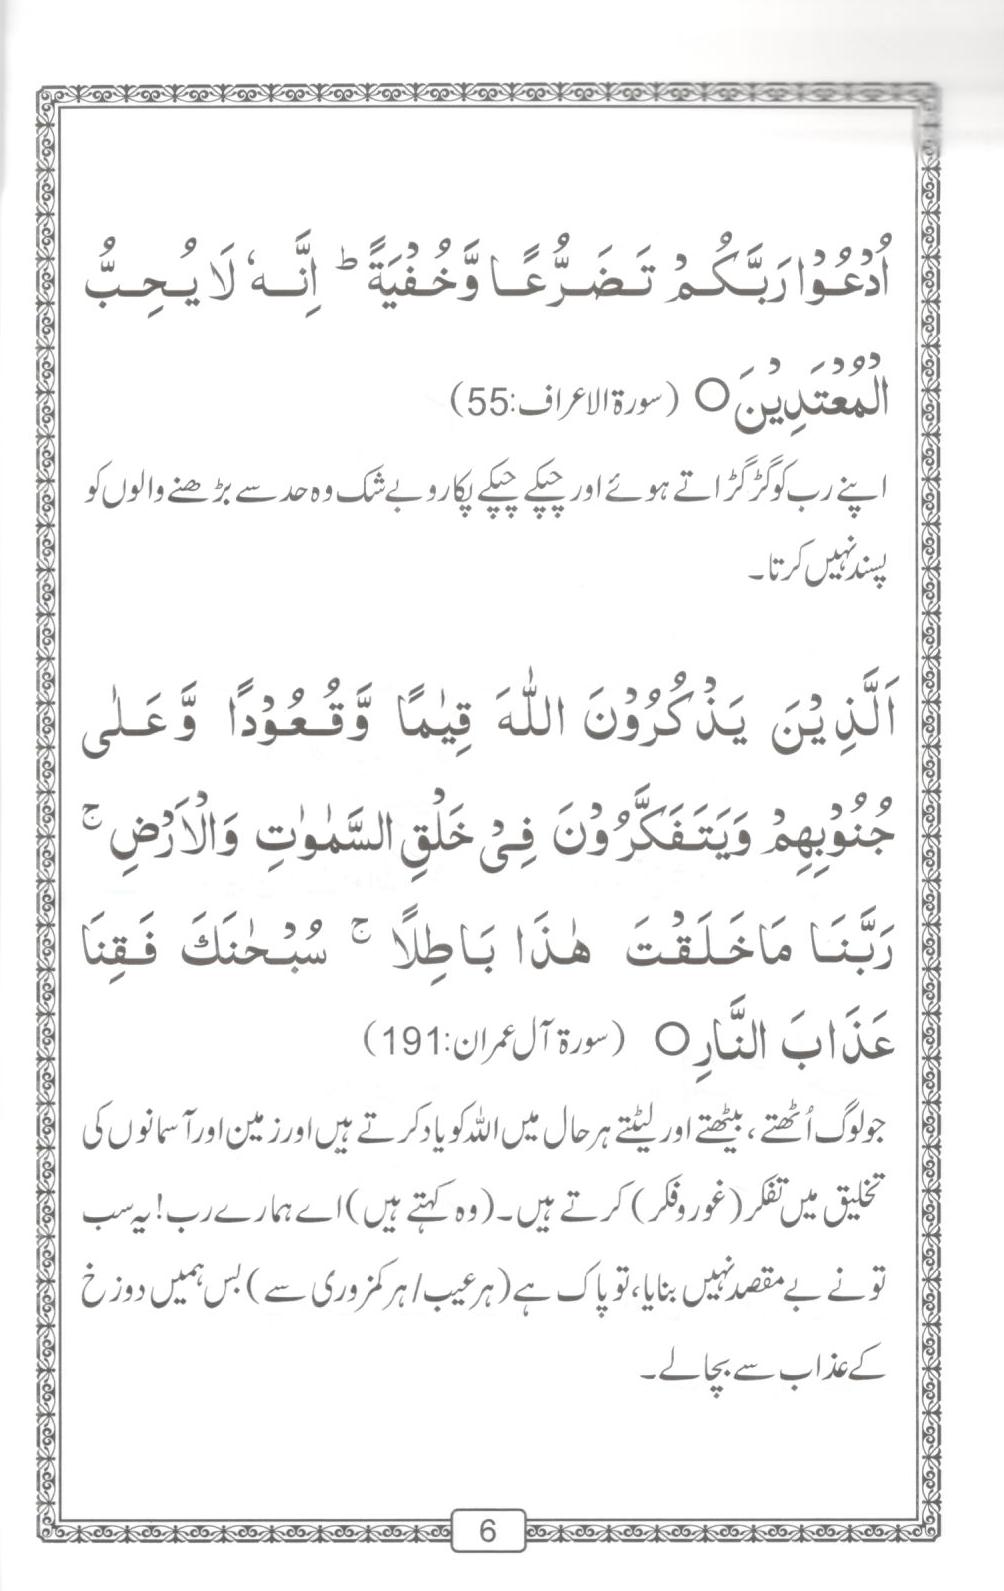 اُدْعُوْا رَبَّكُمْ تَضَرُّعًا وَّخُفْيَةً ؕ اِنَّهٗ لَا يُحِبُّ
الْمُعْتَدِيْنَ ○ (سورۃ الاعراف:55)
اپنے رب کو گڑگڑاتے ہوئے اور چپکے چپکے پکارو بے شک وہ حد سے بڑھنے والوں کو
پسند نہیں کرتا۔
اَلَّذِيْنَ يَذْكُرُوْنَ اللّٰهَ قِيٰمًا وَّقُعُوْدًا وَّعَلٰى
جُنُوْبِهِمْ وَيَتَفَكَّرُوْنَ فِىْ خَلْقِ السَّمٰوٰتِ وَالْاَرْضِ ۚ
رَبَّنَا مَا خَلَقْتَ هٰذَا بَاطِلًا ۚ سُبْحٰنَكَ فَقِنَا
عَذَابَ النَّارِ ○ (سورۃ آل عمران:191)
جو لوگ اُٹھتے، بیٹھتے اور لیٹتے ہر حال میں اللہ کو یاد کرتے ہیں اور زمین اور آسمانوں کی
تخلیق میں تفکر (غور و فکر) کرتے ہیں۔ (وہ کہتے ہیں) اے ہمارے رب! یہ سب
تو نے بے مقصد نہیں بنایا، تو پاک ہے (ہر عیب/ ہر کمزوری سے) بس ہمیں دوزخ
کے عذاب سے بچا لے۔
6